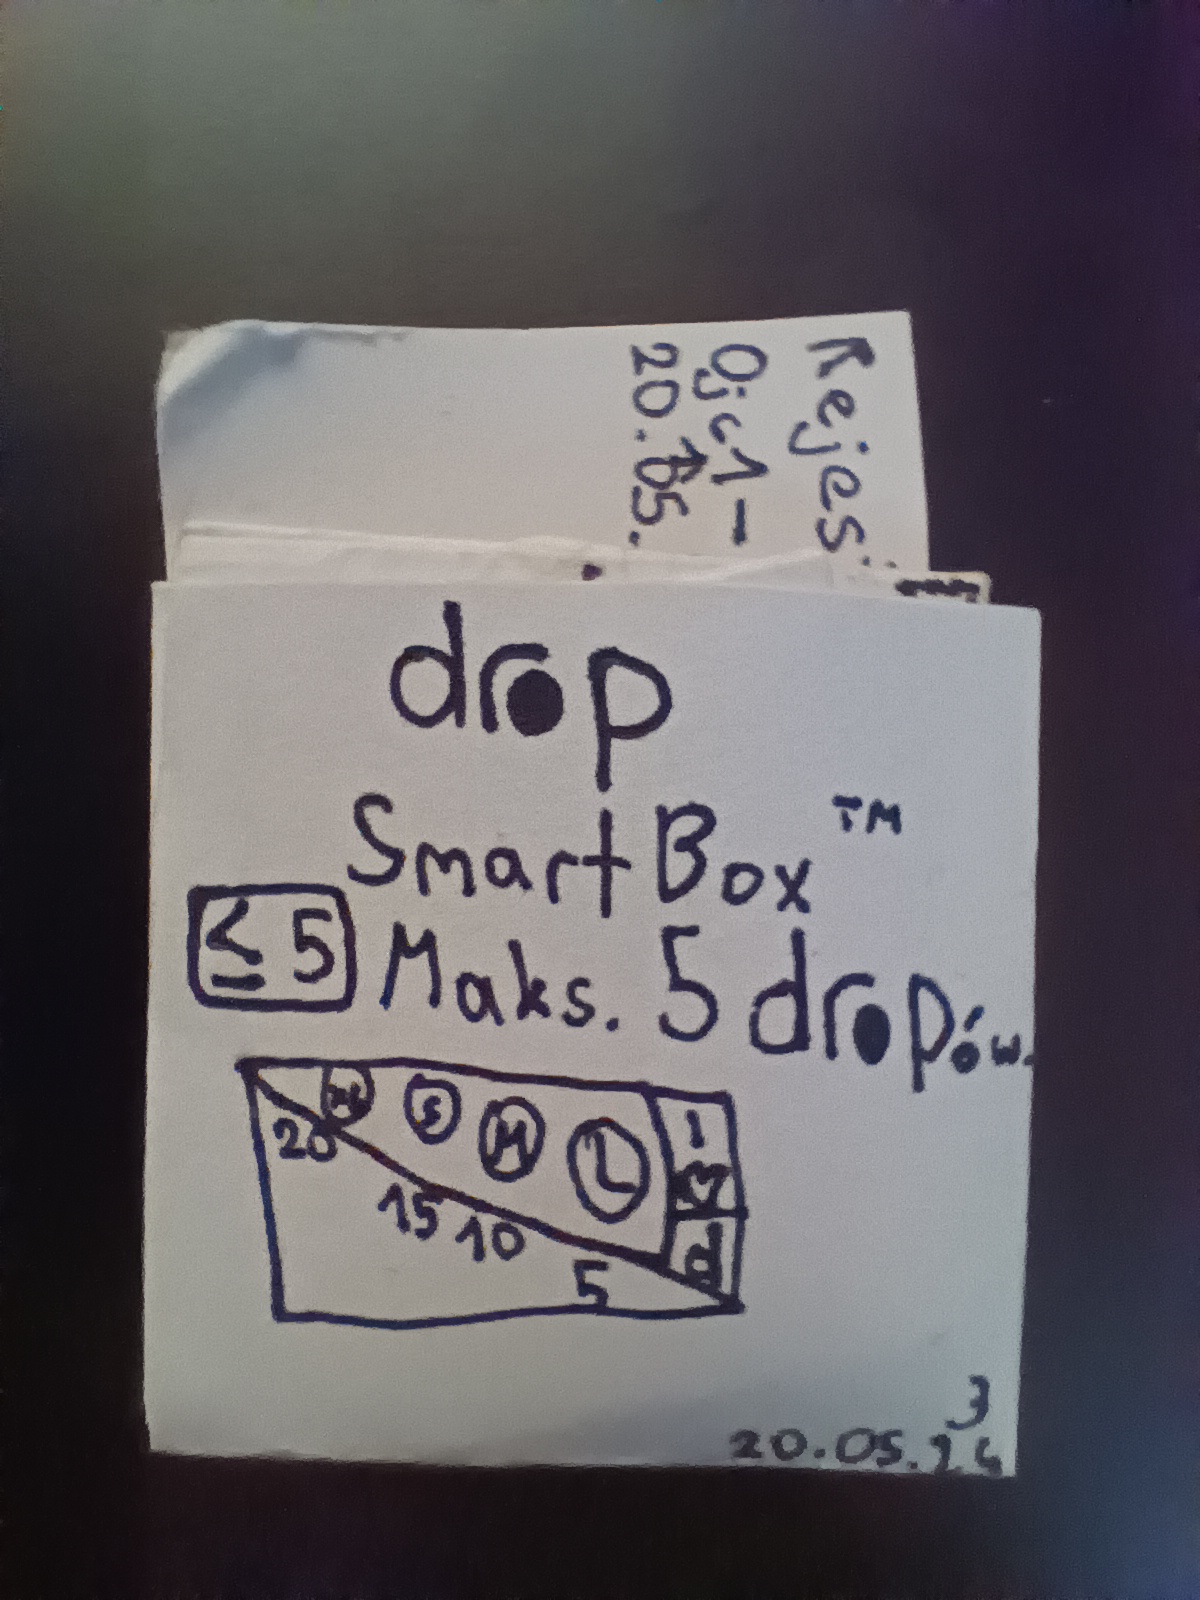 Rejes
Ojc1-
20.05.
drop
SmartBox™
≤5 Maks. 5 dropów.
S M L
20
15 10
5
3
20.05.24